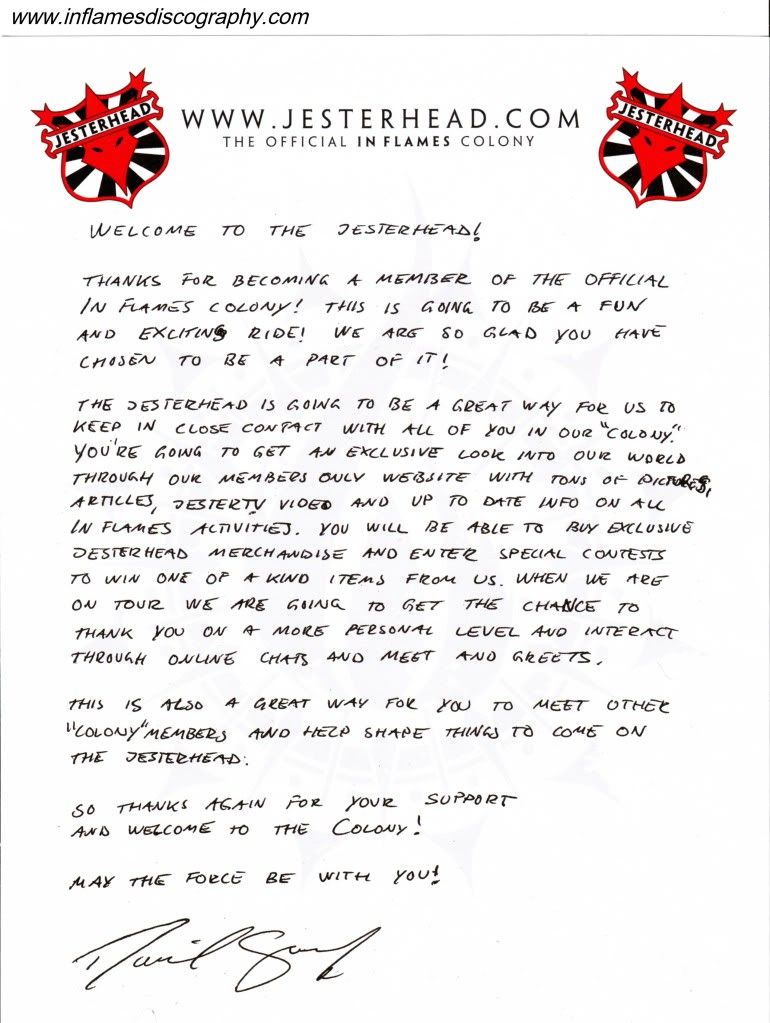 www.inflamesdiscography.com
JESTERHEAD
WWW.JESTERHEAD.COM
JESTERHEAD
THE OFFICIAL IN FLAMES COLONY
WELCOME TO THE JESTERHEAD!
THANKS FOR BECOMING A MEMBER OF THE OFFICIAL
IN FLAMES COLONY! THIS IS GOING TO BE A FUN
AND EXCITING RIDE! WE ARE SO GLAD YOU HAVE
CHOSEN TO BE A PART OF IT!
THE JESTERHEAD IS GOING TO BE A GREAT WAY FOR US TO
KEEP IN CLOSE CONTACT WITH ALL OF YOU IN OUR "COLONY."
YOU'RE GOING TO GET AN EXCLUSIVE LOOK INTO OUR WORLD
THROUGH OUR MEMBERS ONLY WEBSITE WITH TONS OF PICTURES,
ARTICLES, JESTERTV VIDEO AND UP TO DATE INFO ON ALL
IN FLAMES ACTIVITIES. YOU WILL BE ABLE TO BUY EXCLUSIVE
JESTERHEAD MERCHANDISE AND ENTER SPECIAL CONTESTS
TO WIN ONE OF A KIND ITEMS FROM US. WHEN WE ARE
ON TOUR WE ARE GOING TO GET THE CHANCE TO
THANK YOU ON A MORE PERSONAL LEVEL AND INTERACT
THROUGH ONLINE CHATS AND MEET AND GREETS.
THIS IS ALSO A GREAT WAY FOR YOU TO MEET OTHER
"COLONY" MEMBERS AND HELP SHAPE THINGS TO COME ON
THE JESTERHEAD.
SO THANKS AGAIN FOR YOUR SUPPORT
AND WELCOME TO THE COLONY!
MAY THE FORCE BE WITH YOU!